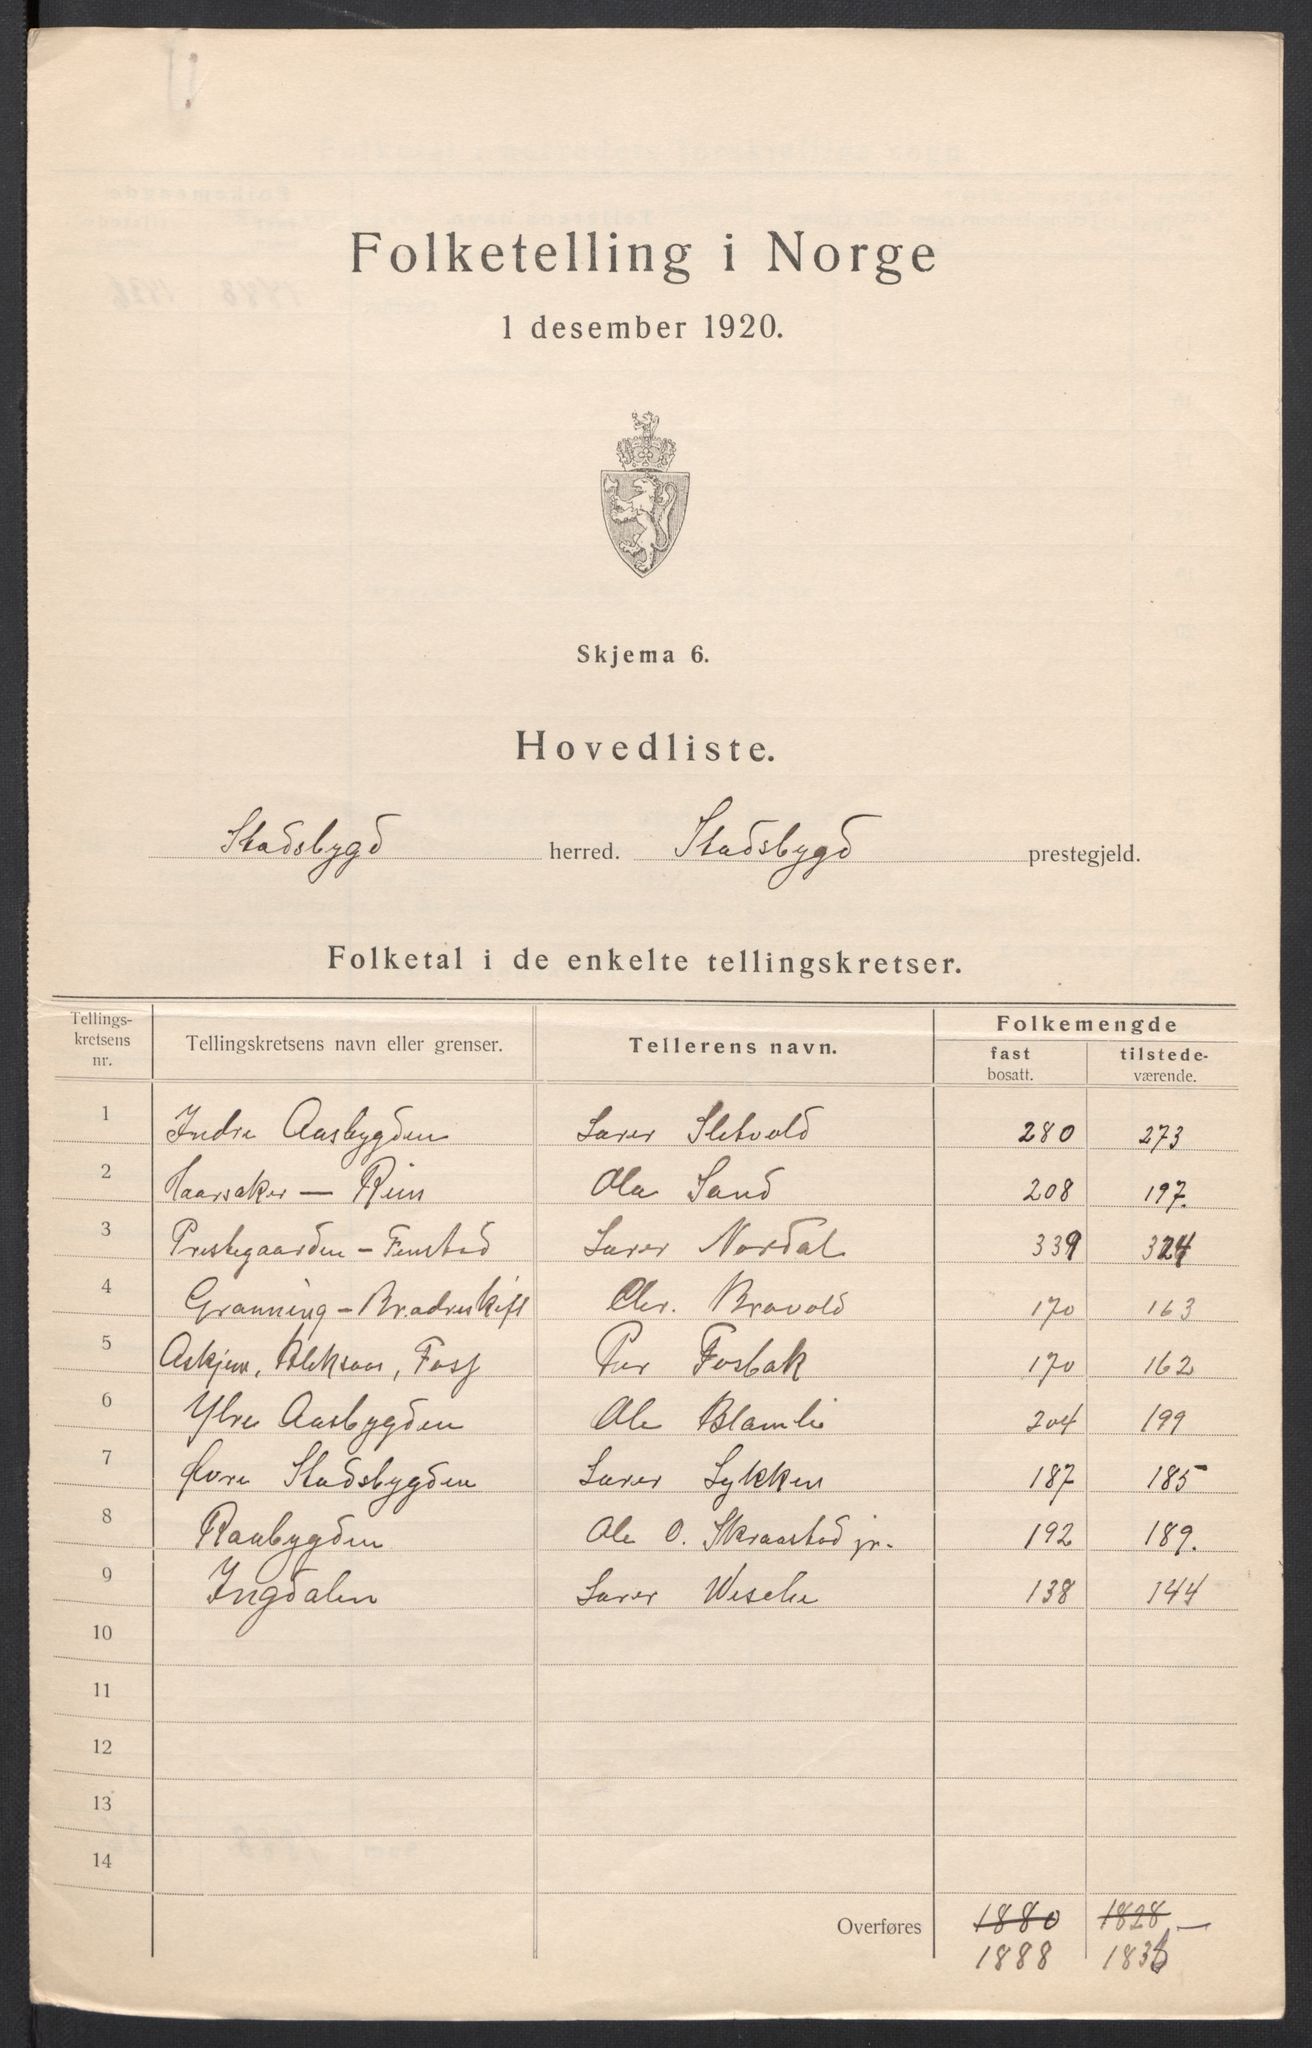 Folketelling i Norge
1 desember 1920.
Skjema 6.
Hovedliste.
Stadsbygd herred. Stadsbygd prestegjeld.
Folketal i de enkelte tellingskretser.
Tellings-
kretsens
nr.
Tellingskretsens navn eller grenser.
Tellerens navn.
Folkemengde
fast
bosatt.
tilstede-
værende.
1 Indre Aasbygden Lærer Sletvold 280 273
2 Haarsaker — Rein Ola Sand 208 197.
3 Prestegaarden — Fenstad Lærer Nordal 339 324
4 Grønning — Brødreskift Chr. Brovold 170 163
5 Askjem, Fosf Per Fosbak 170 162
6 Ytre Aasbygden Ole Blamli 204 199
7 Øvre Stadsbygden Lærer Lykken 187 185
8 Raabygden Ole O. Skraastad jr. 192 189.
9 Ingdalen Lærer Wesche 138 144
10
11
12
13
14
Overføres 1880 1828 —
1888 1836